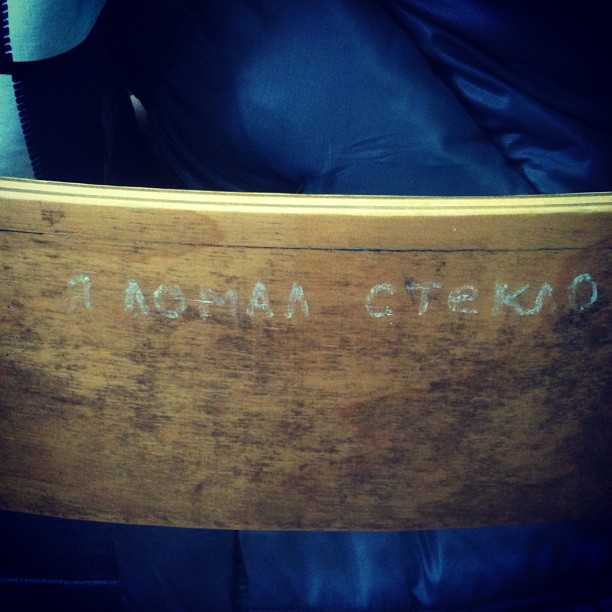 я ломал стекло